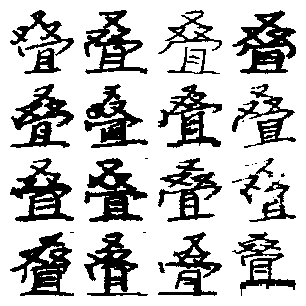 叠叠叠叠
叠叠叠叠
叠叠叠叠
叠叠叠叠